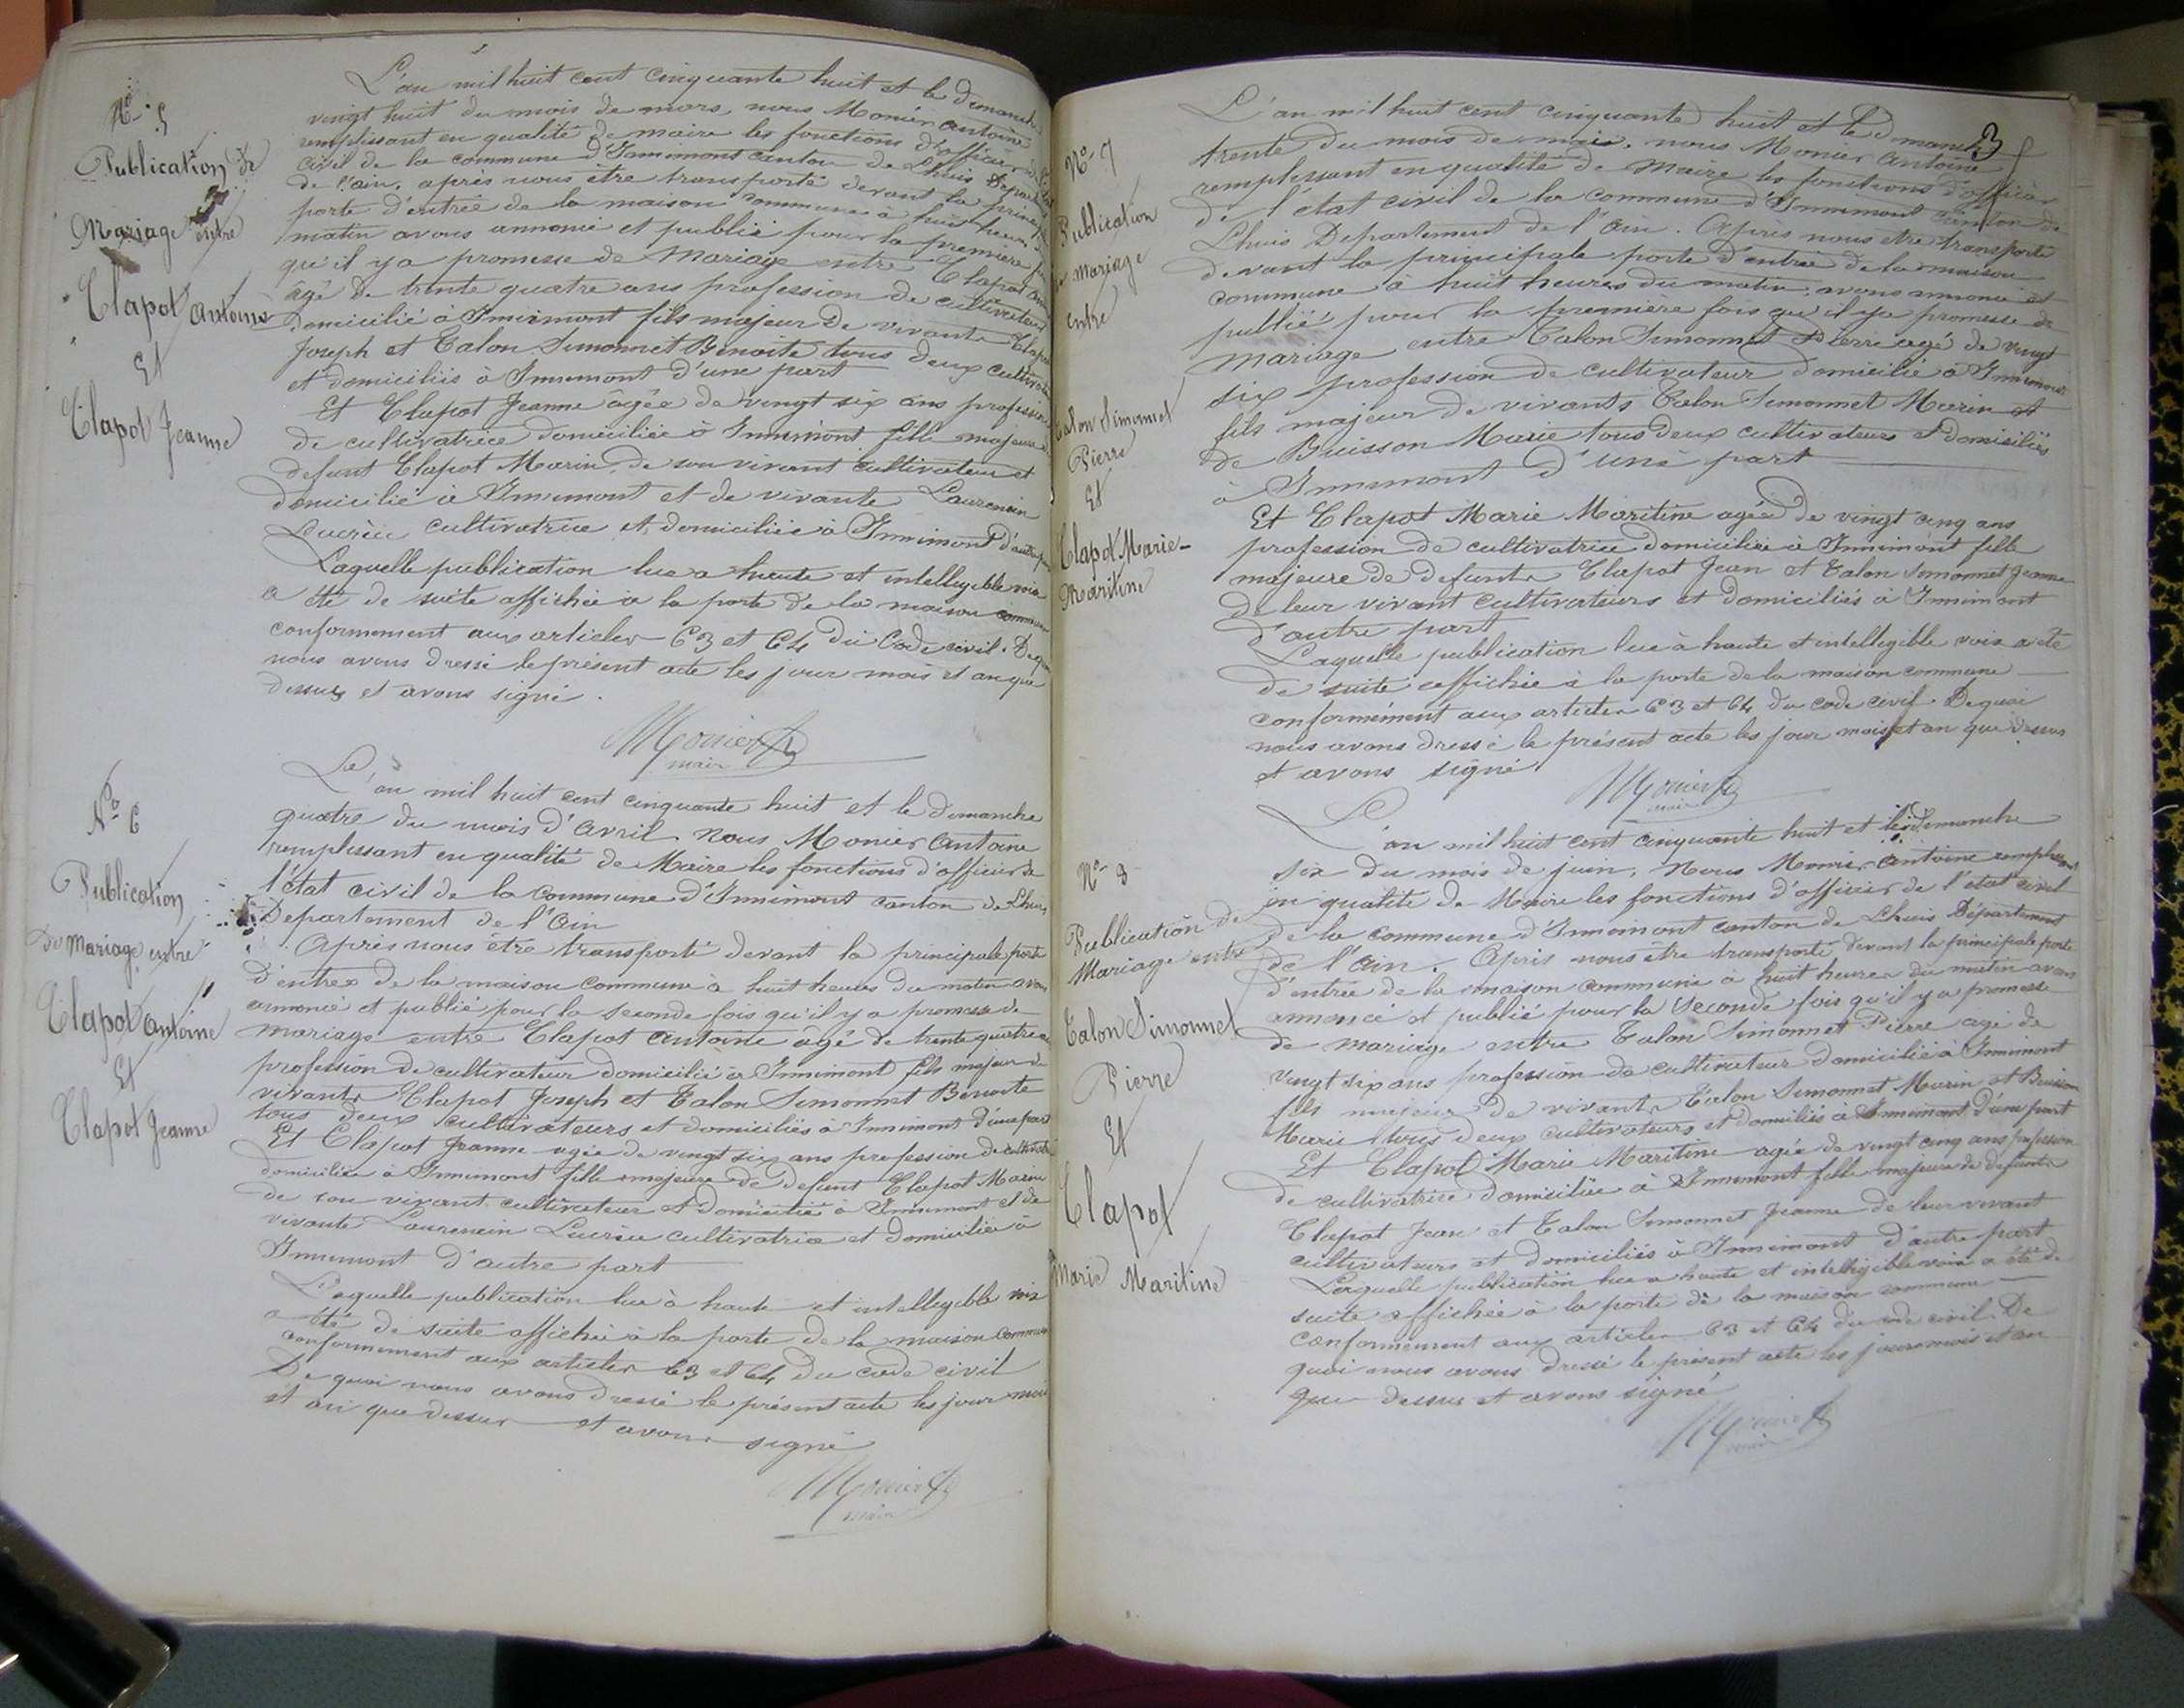 N° 5
Publication de
Mariage entre
Clapot Antoine
Et
Clapot Jeanne
L'an mil huit cent cinquante huit et le dimanche
vingt huit du mois de mars, nous Monier Antoine
remplissant en qualité de maire les fonctions d'officier
civil de la commune d'Innimont canton de Lhuis
de l'ain. après nous être transporté devant la
porte d'entrée de la maison commune à huit heures
matin avons annoncé et publié pour la première
qu'il y a promesse de Mariage entre Clapot
agé de trente quatre ans profession de cultivateur
domicilié à Innimont fils majeur de vivants Clapot
Joseph et Talon Simonnet Benoite tous deux
et domiciliés à Innimont d'une part
Et Clapot Jeanne agée de vingt six ans profession
de cultivatrice domiciliée à Innimont fille majeure
defunt Clapot Marin de son vivant cultivateur et
domicilié à Innimont et de vivante Laurencin
Lucrèce cultivatrice et domiciliée à Innimont
Laquelle publication lue a haute et intelligible voix
a été de suite affichée à la porte de la maison commune
conformement aux articles 63 et 64 du Code civil. De quoi
nous avons dressé le présent acte les jour mois et an que
dessus et avons signé.
Monier
maire
N° 6
Publication
De Mariage entre
Clapot Antoine
Et
Clapot Jeanne
L'an mil huit cent cinquante huit et le dimanche
quatre du mois d'Avril nous Monier Antoine
remplissant en qualité de Maire les fonctions d'officier de
l'état civil de la commune d'Innimont canton de Lhuis
Departement de l'Ain
Après nous être transporté devant la principale porte
d'entrée de la maison commune à huit heures du matin avons
annoncé et publié pour la seconde fois qu'il y a promesse de
mariage entre Clapot Antoine agé de trente quatre
profession de cultivateur domicilié à Innimont fils majeur de
vivants Clapot Joseph et Talon Simonnet Benoite
tous deux cultivateurs et domiciliés à Innimont d'une part
Et Clapot Jeanne agée de vingt six ans profession de
domiciliée à Innimont fille majeure de defunt Clapot Marin
de son vivant cultivateur et domicilié à Innimont et de
vivante Laurencin Lucrèce cultivatrice et domiciliée à
Innimont d'autre part
Laquelle publication lue à haute et intelligible voix
a été de suite affichée à la porte de la maison commune
conformement aux articles 63 et 64 du code civil
De quoi nous avons dressé le présent acte les jour mois
et an que dessus et avons signé
Monier
maire
3
N° 7
Publication
de mariage
entre
Talon Simonnet
Pierre
Et
Clapot Marie-
Maritine
L'an mil huit cent cinquante huit et le dimanche
trente du mois de mai, nous Monier Antoine
remplissant en qualité de Maire les fonctions d'officier
de l'état civil de la commune d'Innimont canton de
Lhuis Departement de l'Ain. Apres nous etre transporté
devant la principale porte d'entrée de la maison
commune à huit heures du matin, avons annoncé et
publié pour la première fois qu'il y a promesse de
mariage entre Talon Simonnet Pierre agé de vingt
six profession de cultivateur domicilié à Innimont
fils majeur de vivants Talon Simonnet Marin et
de Buisson Marie tous deux cultivateurs et domiciliés
à Innimont d'une part
Et Clapot Marie Maritine agée de vingt cinq ans
profession de cultivatrice domiciliée à Innimont fille
majeure de defunts Clapot Jean et Talon Simonnet Jeanne
de leur vivant cultivateurs et domiciliés à Innimont
d'autre part
Laquelle publication lue à haute et intelligible voix a été
de suite affichée à la porte de la maison commune
conformément aux articles 63 et 64 du code civil. De quoi
nous avons dressé le présent acte les jour mois et an que dessus
et avons signé
Monier
maire
N° 8
Publication de
Mariage entre
Talon Simonnet
Pierre
Et
Clapot
Marie Maritine
L'an mil huit cent cinquante huit et le dimanche
six du mois de juin, nous Monier Antoine remplissant
en qualité de Maire les fonctions d'officier de l'état civil
de la commune d'Innimont canton de Lhuis Département
de l'ain. Après nous être transporté devant la principale porte
d'entrée de la maison commune à huit heures du matin avons
annoncé et publié pour la seconde fois qu'il y a promesse
de mariage entre Talon Simonnet Pierre agé de
vingt six ans profession de cultivateur domicilié à Innimont
fils majeur de vivants Talon Simonnet Marin et Buisson
Marie tous deux cultivateurs et domiciliés à Innimont d'une part
Et Clapot Marie Maritine agée de vingt cinq ans profession
de cultivatrice domiciliée à Innimont fille majeure de defunts
Clapot Jean et Talon Simonnet Jeanne de leur vivant
cultivateurs et domiciliés à Innimont d'autre part
Laquelle publication lue a haute et intelligible voix a été de
suite affichée à la porte de la maison commune
conformement aux articles 63 et 64 du code civil. De
quoi nous avons dressé le présent acte les jour mois et an
que dessus et avons signé
Monier
maire